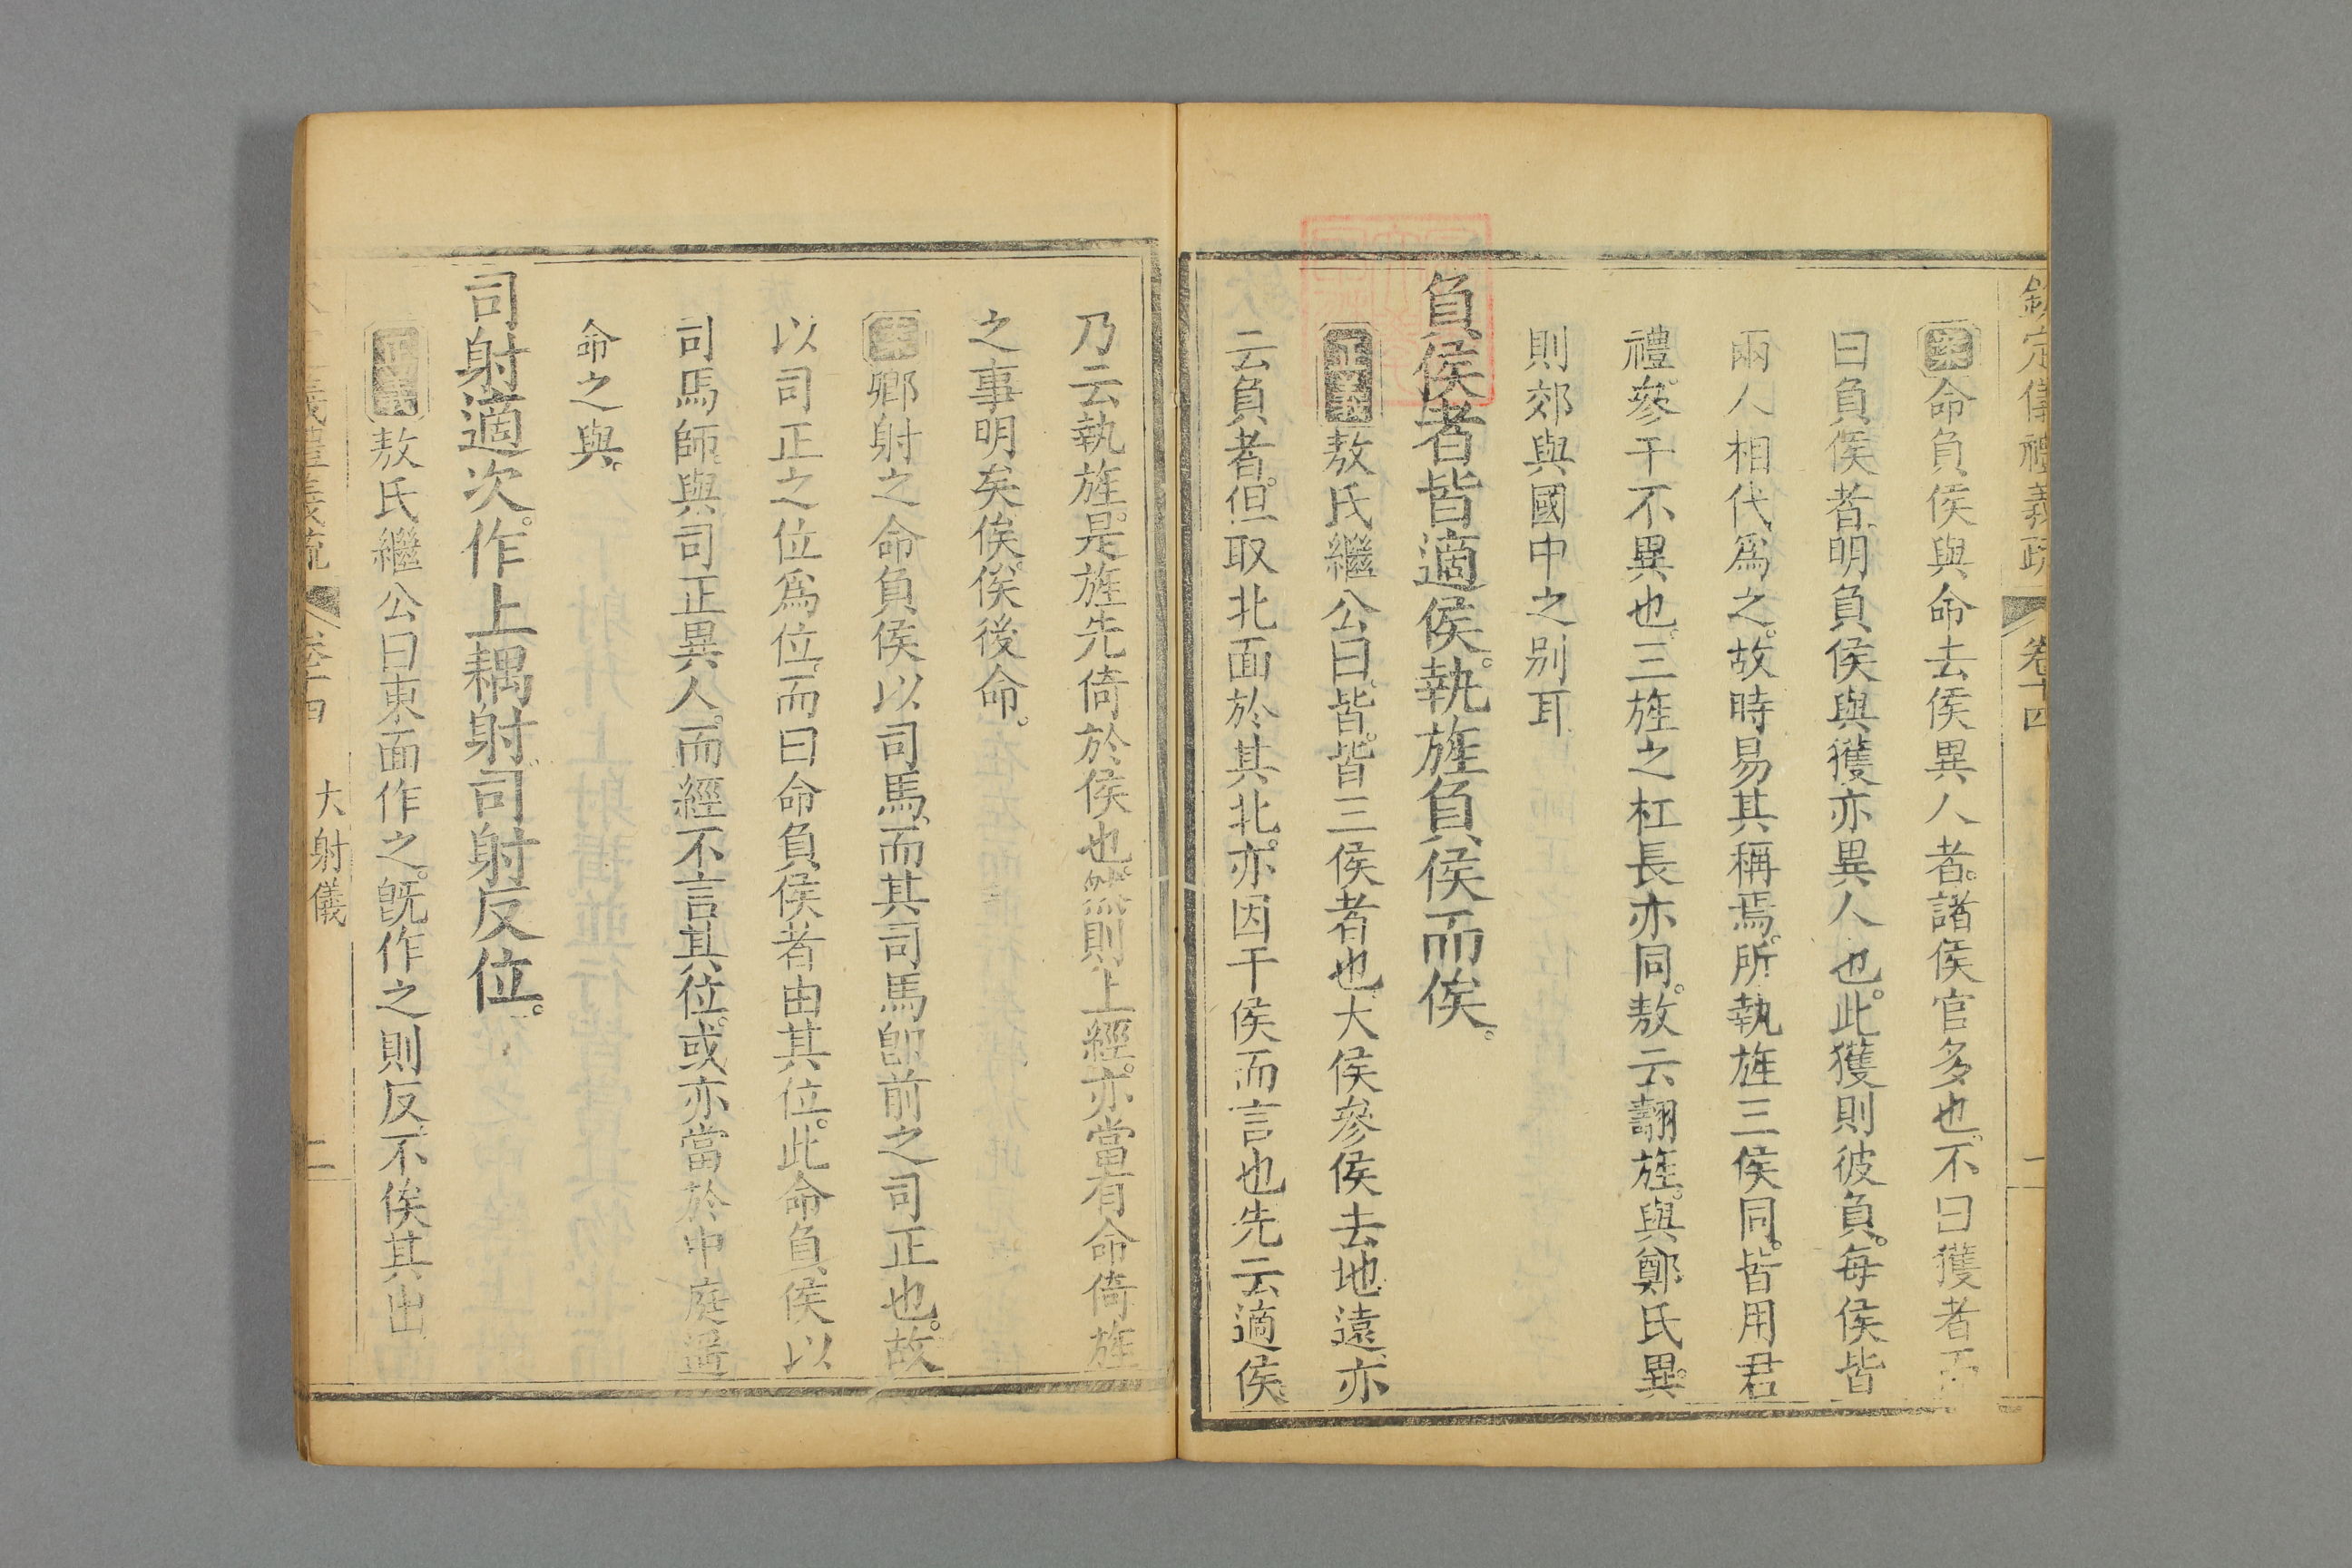 欽定儀禮義疏 卷十四 一
案命負侯與命去侯異人者。諸侯官多也。不曰獲者而
曰負侯者。明負侯與獲亦異人也。此獲則彼負。每侯皆
兩人相代爲之。故時易其稱焉。所執旌三侯同。皆用君
禮。參干不異也。三旌之杠長亦同。敖云翿旌。與鄭氏異。
則郊與國中之别耳
負侯者皆適侯。執旌負侯而俟。
正義敖氏繼公曰。皆。皆三侯者也。大侯參侯去地遠。亦
云負者。但取北面於其北。亦因干侯而言也先云適侯
乃云執旌。是旌先倚於侯也。然則上經。亦當有命倚旌
之事明矣。俟。俟後命。
案鄉射之命負侯以司馬。而其司馬卽前之司正也。故
以司正之位爲位。而曰命負侯者由其位。此命負侯以
司馬師。與司正異人。而經不言其位。或亦當於中庭遥
命之與。
司射適次。作上耦射。司射反位。
正義敖氏繼公曰東面作之。旣作之則反。不俟其出
義禮義疏 卷十四 大射儀 二